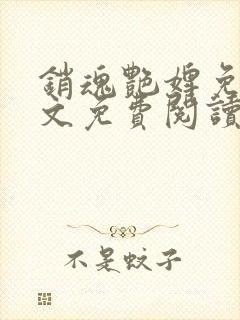 銷魂艷婢免
文免費閱讀
不是蚊子